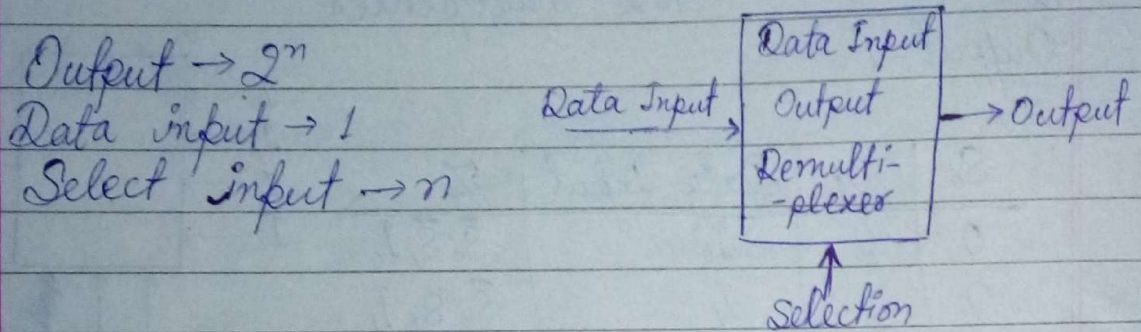 Output → 2ⁿ
Data input → 1
Select input → n
Data Input
Data Input
Output
Demulti-
-plexer
→ Output
Selection